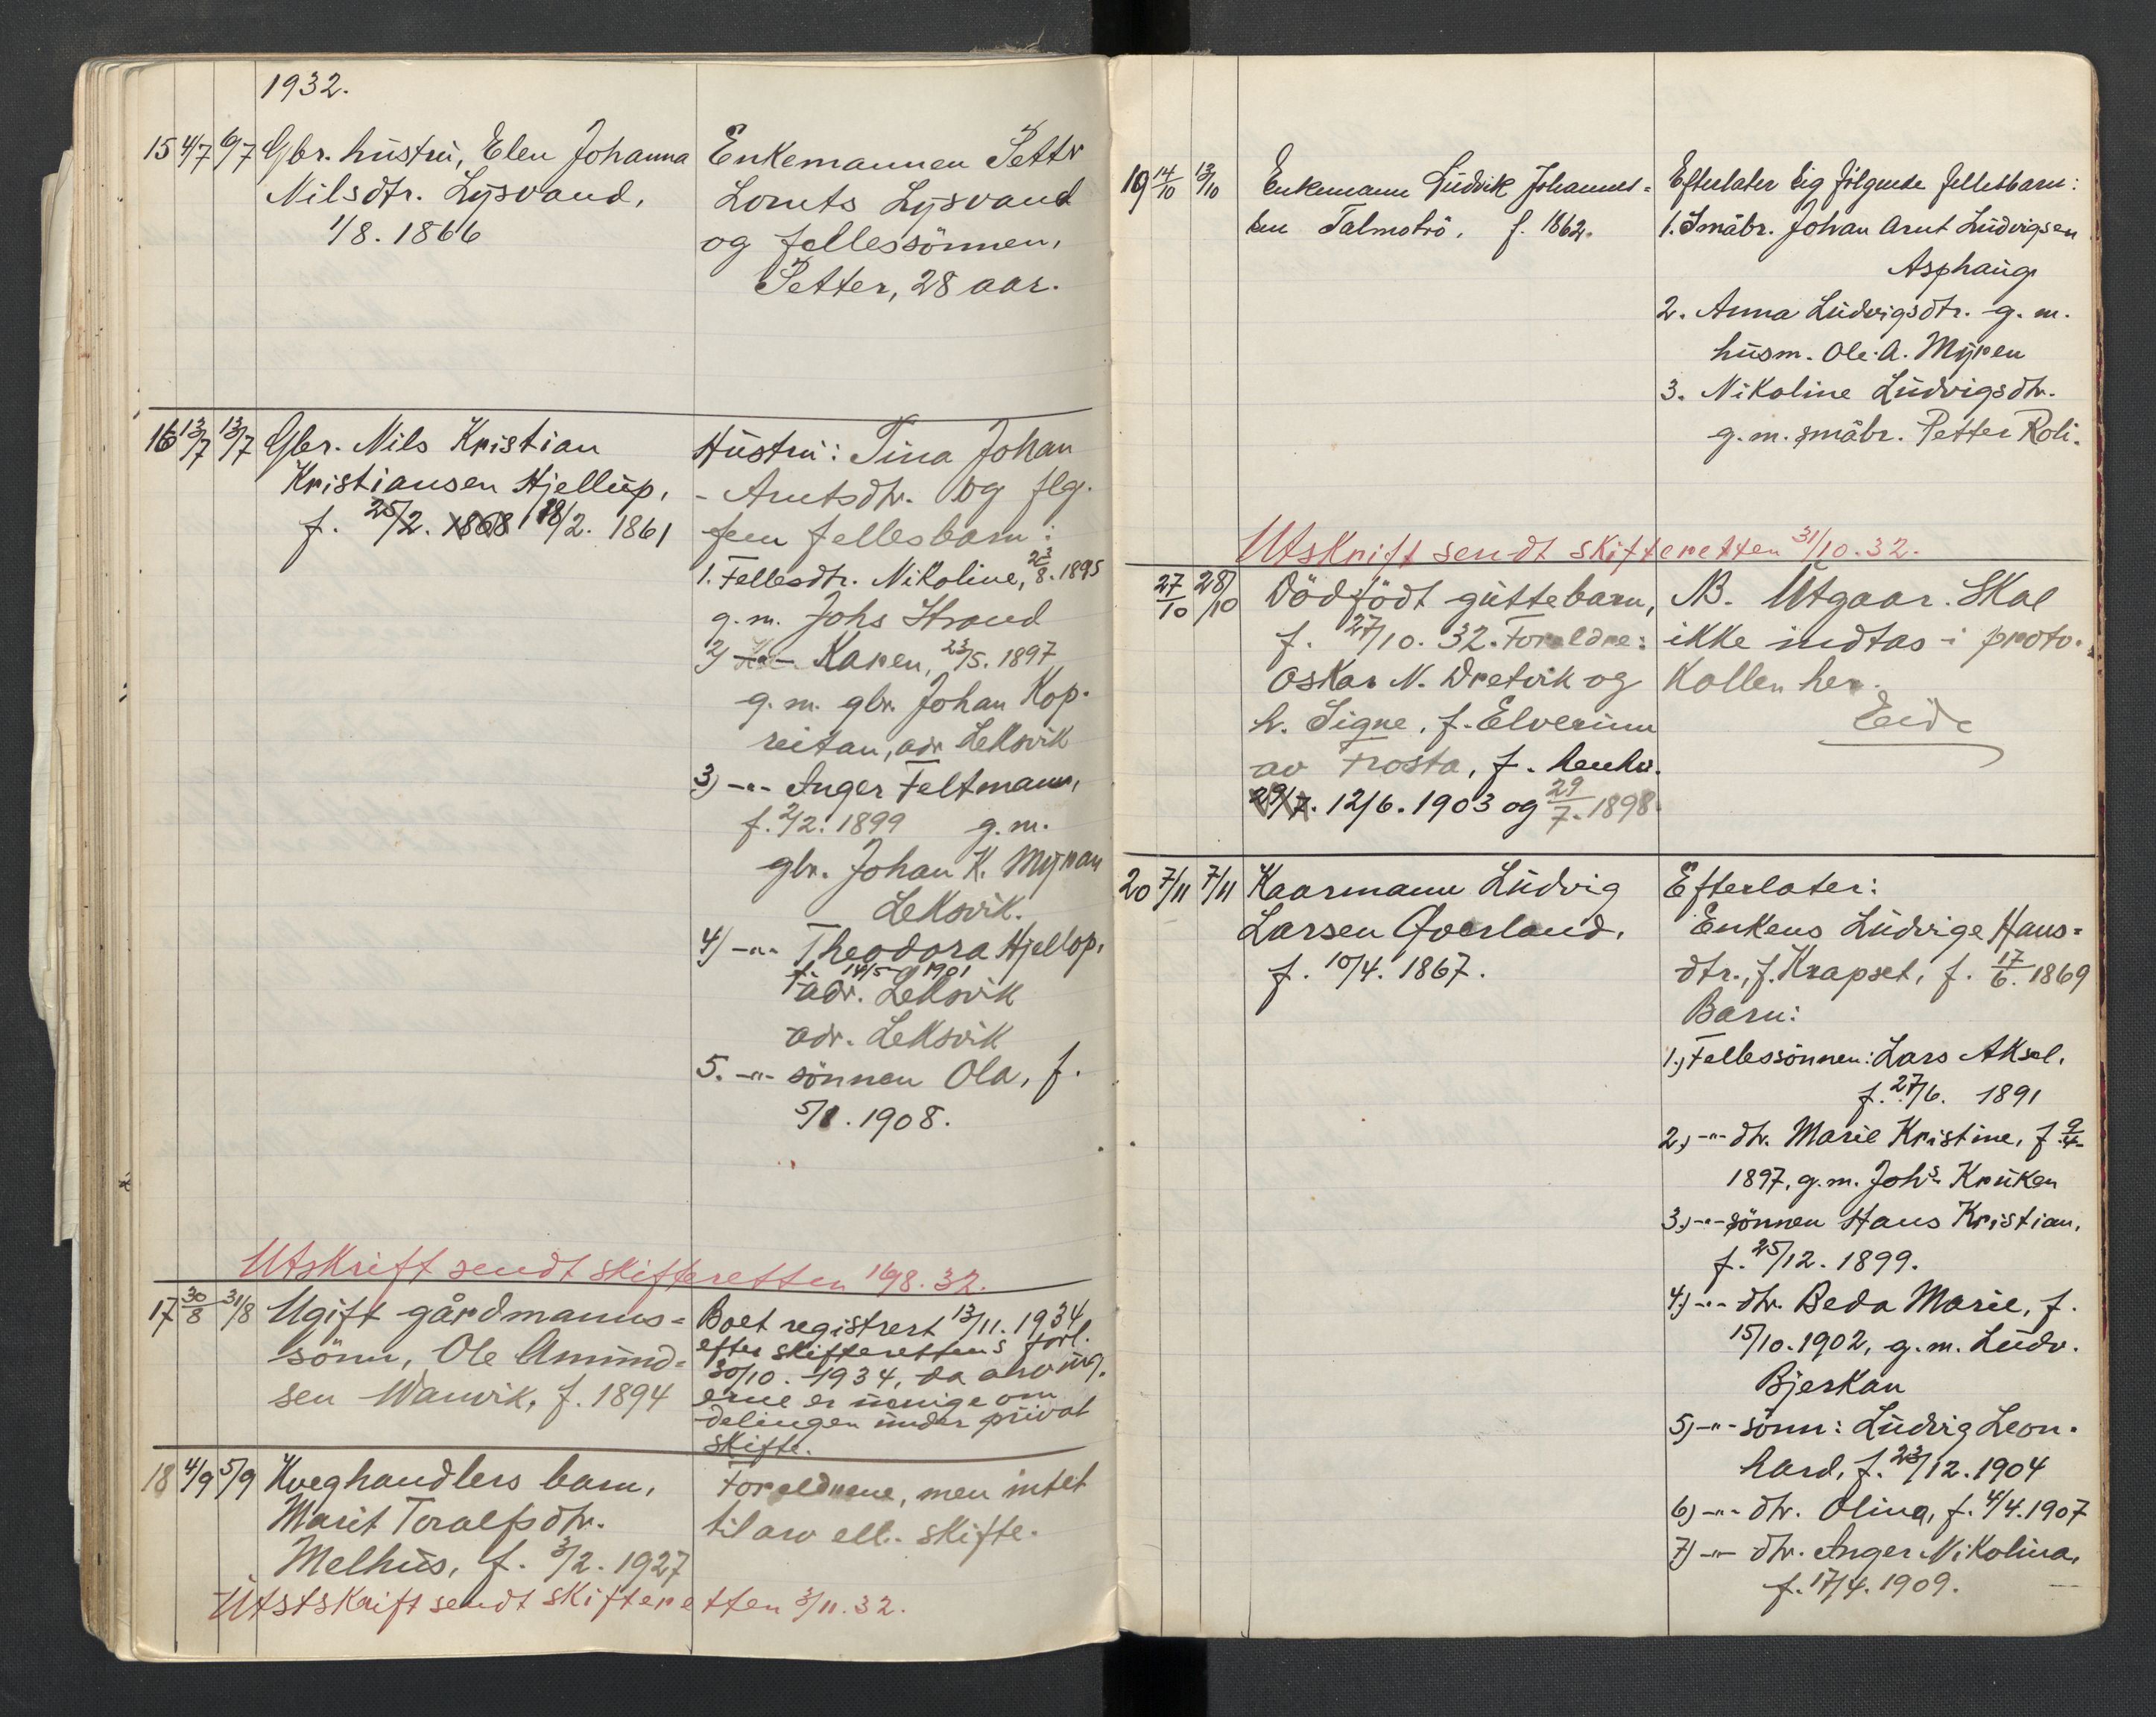 1932.
15 4/7 6/7 Gbr. hustru, Elen Johanna
Nilsdtr. Lysvand,
1/8. 1866
Enkemannen Petter
Lornts Lysvand
og fellessönnen,
Petter, 28 aar.
16 13/7 13/7 Gbr. Nils Kristian
Kristiansen Hjellup,
f. 25/2. 1868 18/2. 1861
Hustru: Tina Johan
- Arntsdtr. og flg.
fem fellesbarn:
1. Fellesdtr. Nikoline, 23/8. 1895
g. m. Johs Strand
2) -"- Karen, 23/5. 1897
g. m. gbr. Johan Kop-
reitan, adr Leksvik
3) -"- Inger Feltmann,
f. 2/2. 1899 g. m.
gbr. Johan K. Myran
Leksvik.
4) -"- Theodora Hjellop,
f. 14/5 1901
adr. Leksvik
adr. Leksvik
5. -"- sönnen Ola, f.
5/1. 1908.
Utskrift sendt skifteretten 16/8. 32.
17 30/8 31/8 Ugift gårdmanns=
sönn, Ole Amund=
sen Wanvik, f. 1894
Boet registrert 13/11. 1934
efter skifterettens forl.
30/10. 1934, da arving.
erne er uenige om
delingen under privat
skifte.
18 4/9 5/9 Kveghandlers barn,
Marit Toralfsdtr.
Melhus, f. 3/2. 1927
Foreldrene, men intet
til arv ell. skifte.
Utstskrift sendt skifteretten 3/11. 32.
19 14/10 13/10 Enkemann Ludvik Johannes=
sen Talmotrö. f. 1862.
Efterlater sig fölgende fellesbarn:
1. Småbr. Johan Arnt Ludvigsen
Asphaug
2. Anna Ludvigsdtr. g. m.
husm. Ole. A. Myren
3. Nikoline Ludvigsdtr.
g. m. småbr. Petter Roli.
Utskrift sendt skifteretten 31/10. 32.
27/10 28/10 Dödfödt guttebarn,
f. 27/10. 32. Foreldre:
Oskar N. Dretvik og
h. Signe, f. Elverum
av Frosta, f. henhv.
29/7. 12/6. 1903 og 29/7. 1898.
NB. Utgaar. Skal
ikke indtas i proto-
kollen her.
Eide
20 7/11 7/11 Kaarmann Ludvig
Larsen Överland,
f. 10/4. 1867.
Efterlater:
Enkens Ludvige Hans=
dtr., f. Krapset, f. 17/6. 1869
Barn:
1.) Fellessönnen: Lars Aksel,
f. 27/6. 1891
2.) -"- dtr. Marie Kristine, f. 9/4.
1897, g. m. Johs. Kruken
3.) -"- sönnen Hans Kristian,
f. 25/12. 1899.
4.) -"- dtr. Beda Marie, f.
15/10. 1902, g. m. Ludv.
Bjerkan
5) -"- sönn: Ludvig Leon-
hard, f. 23/12. 1904
6) -"- dtr. Olina, f. 4/4. 1907
7) -"- dtr. Inger Nikolina,
f. 17/4. 1909.